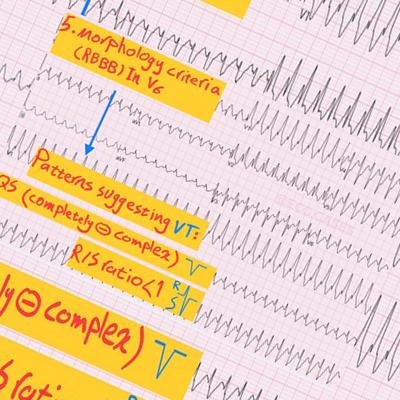 5. morphology criteria
(RBBB) In V6
Patterns suggesting VT:
QS (completely ⊖ complex)
R/S ratio<1 R
S
ly ⊖ complex)